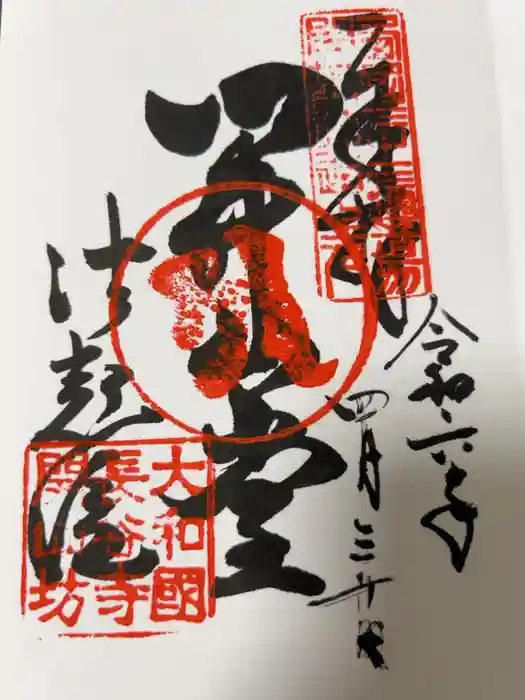 令和六年
四月三十日
開山堂
法起院
大和國
長谷寺
開山坊